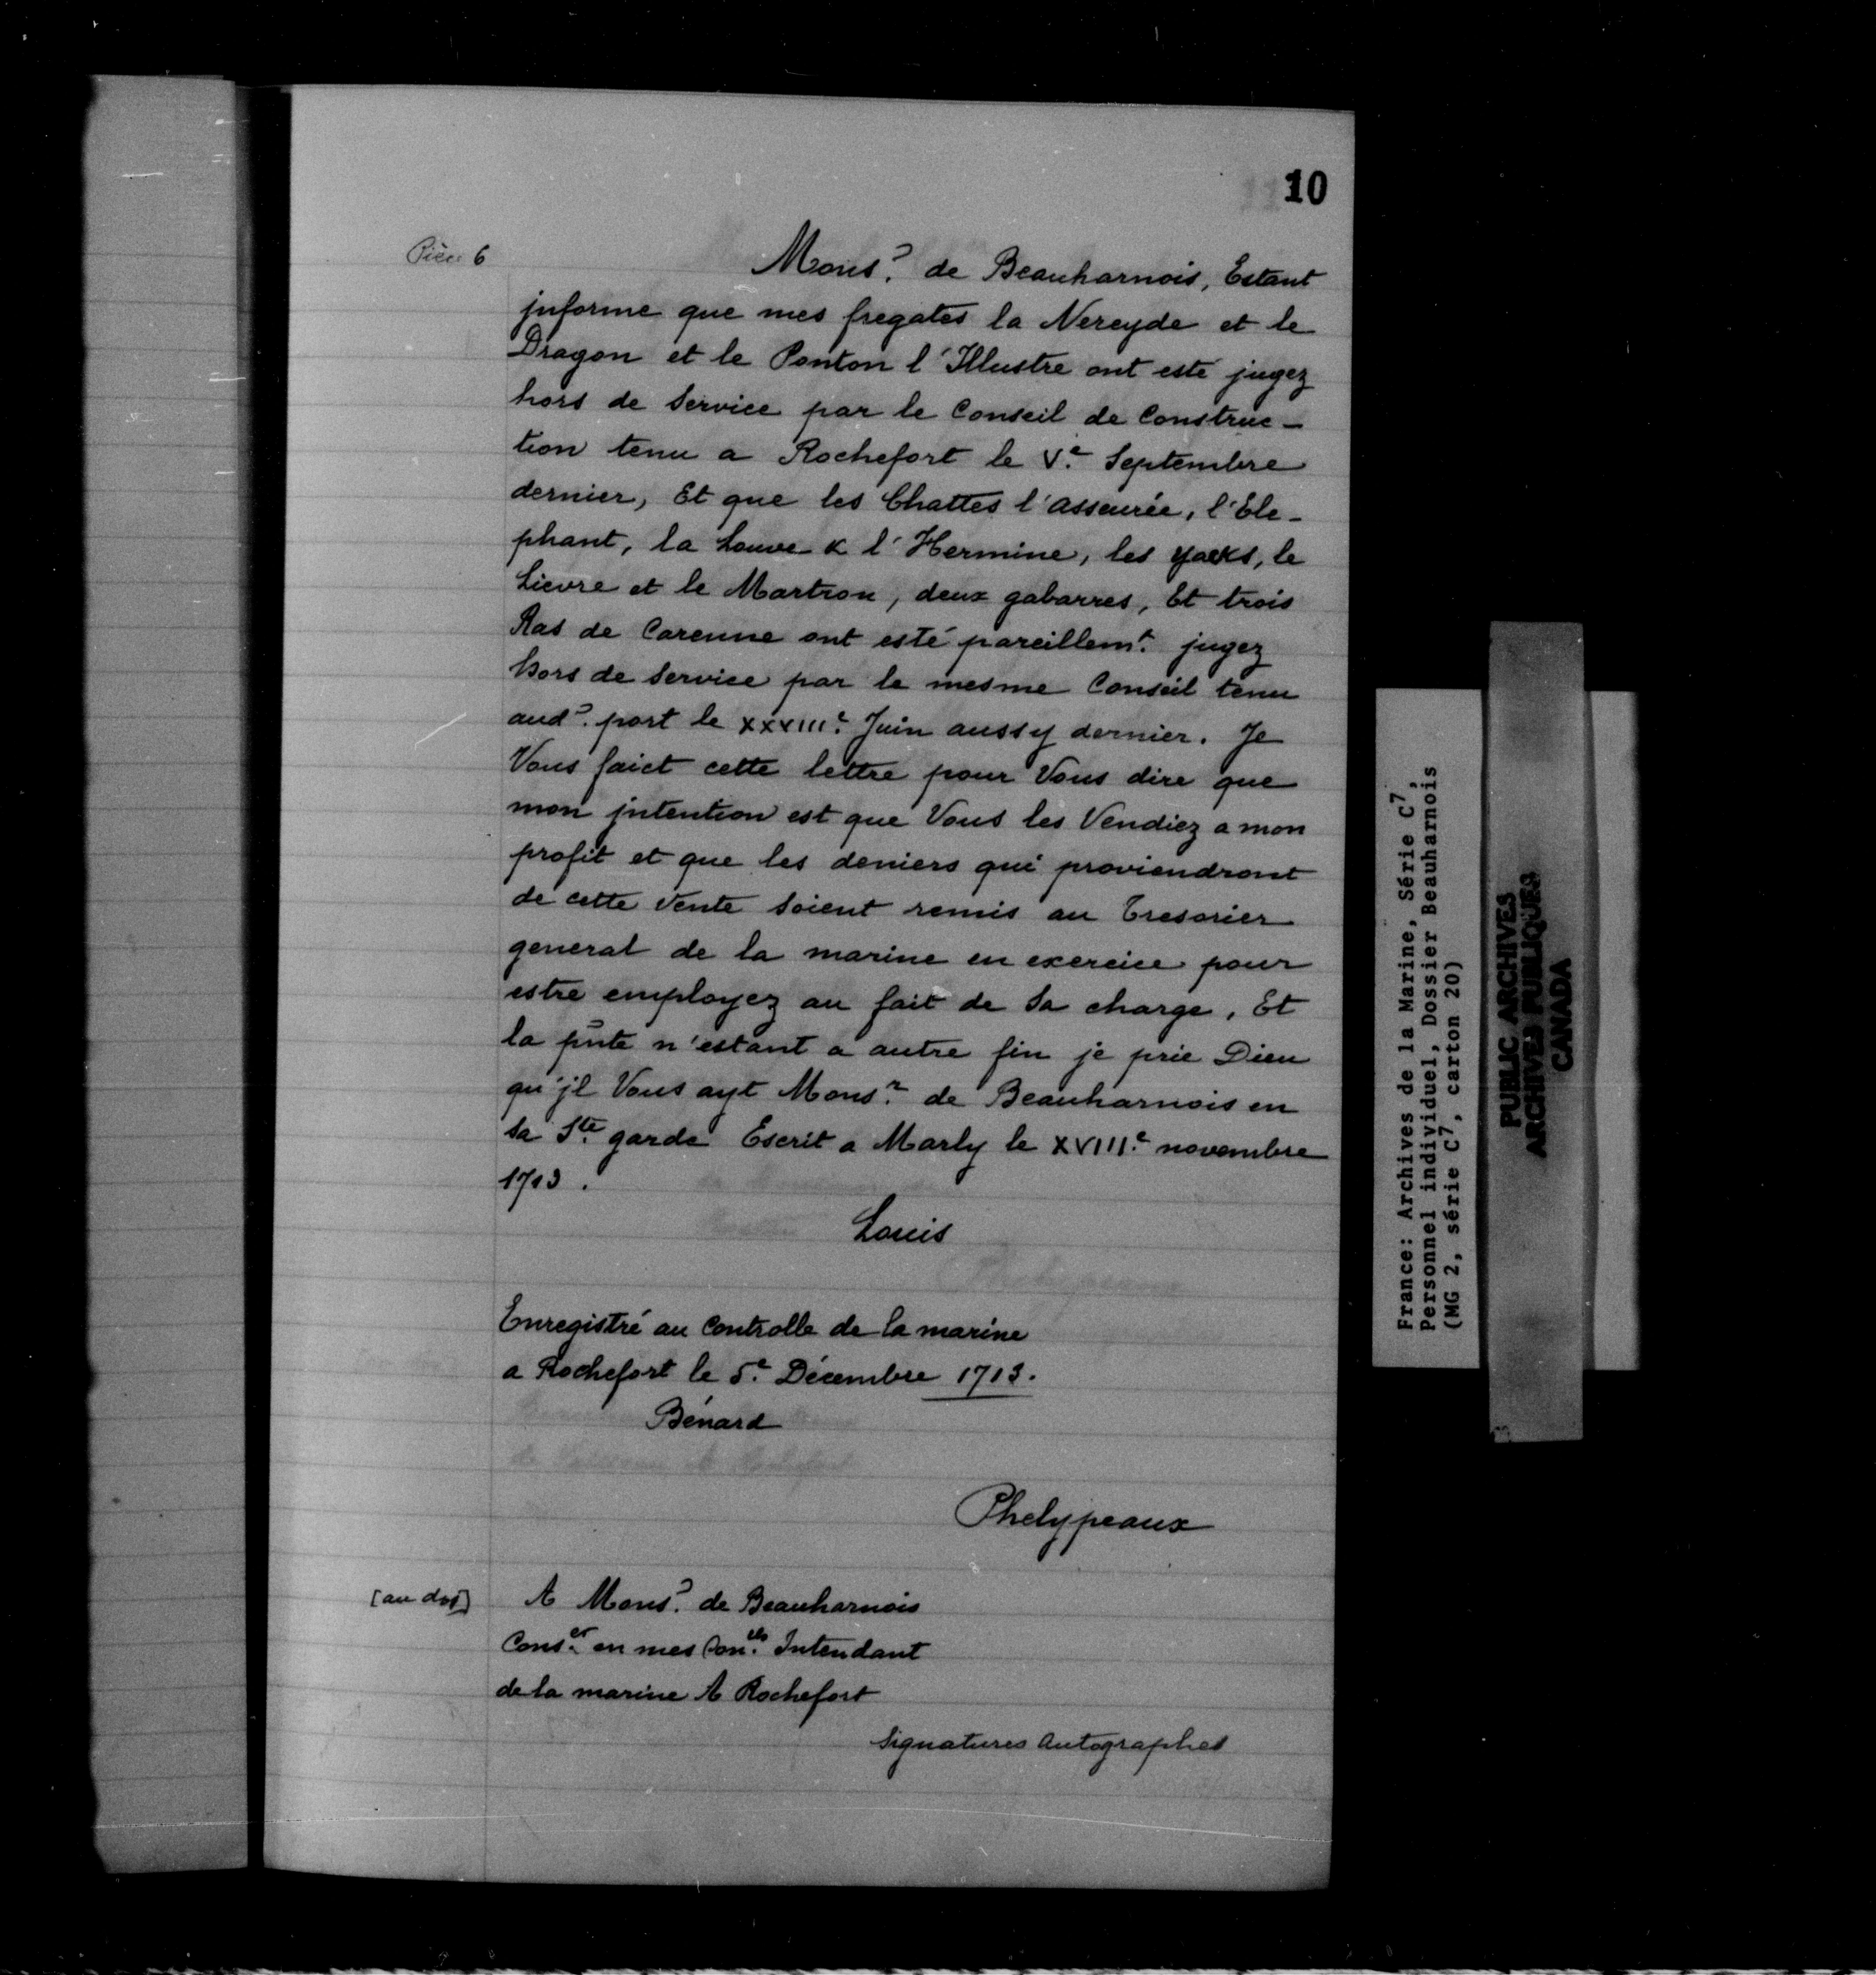 10
Pièce 6
Mons.r de Beauharnois, Estant
jnforme que mes fregates la Nereyde et le
Dragon et le Ponton l'Illustre ont esté jugez
hors de Service par le Conseil de Construc-
tion tenu a Rochefort le V.e Septembre
dernier, Et que les Chattes l'asseurée, l'Ele-
phant, la Louve & l'Hermine, les yacks, le
Lievre et le Martron, deux gabarres, Et trois
Ras de Carenne ont esté pareillem.t jugez
hors de Service par le mesme Conseil tenu
aud.t port le XXXIII.e Juin aussy dernier. Je
Vous faict cette lettre pour Vous dire que
mon jntention est que Vous les Vendiez a mon
profit et que les deniers qui proviendront
de cette Vente Soient remis au Tresorier
general de la marine en exercice pour
estre employez au fait de Sa charge, Et
la pñte n'estant a autre fin je prie Dieu
qu'jl Vous ayt Mons.r de Beauharnois en
Sa S.te garde Escrit a Marly le XVIII.e novembre
1713.
Louis
Enregistré au Controlle de la marine
a Rochefort le 5.e Décembre 1713.
Bénard
Phelypeaux
[au dos] A Mons.r de Beauharnois
Cons.er en mes Con.els Intendant
de la marine A Rochefort
Signatures Autographes
France: Archives de la Marine, Série C7,
Personnel individuel, Dossier Beauharnois
(MG 2, série C7, carton 20)
PUBLIC ARCHIVES
ARCHIVES PUBLIQUES
CANADA